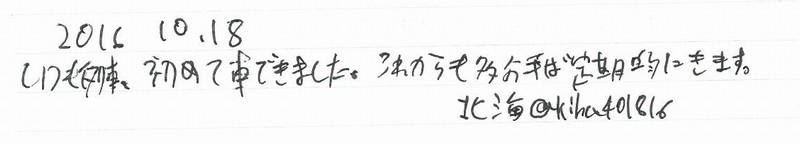 2016 10.18
いつも列車。初めて車できました。これからも多分は定期的にきます。
北海@kiha401816